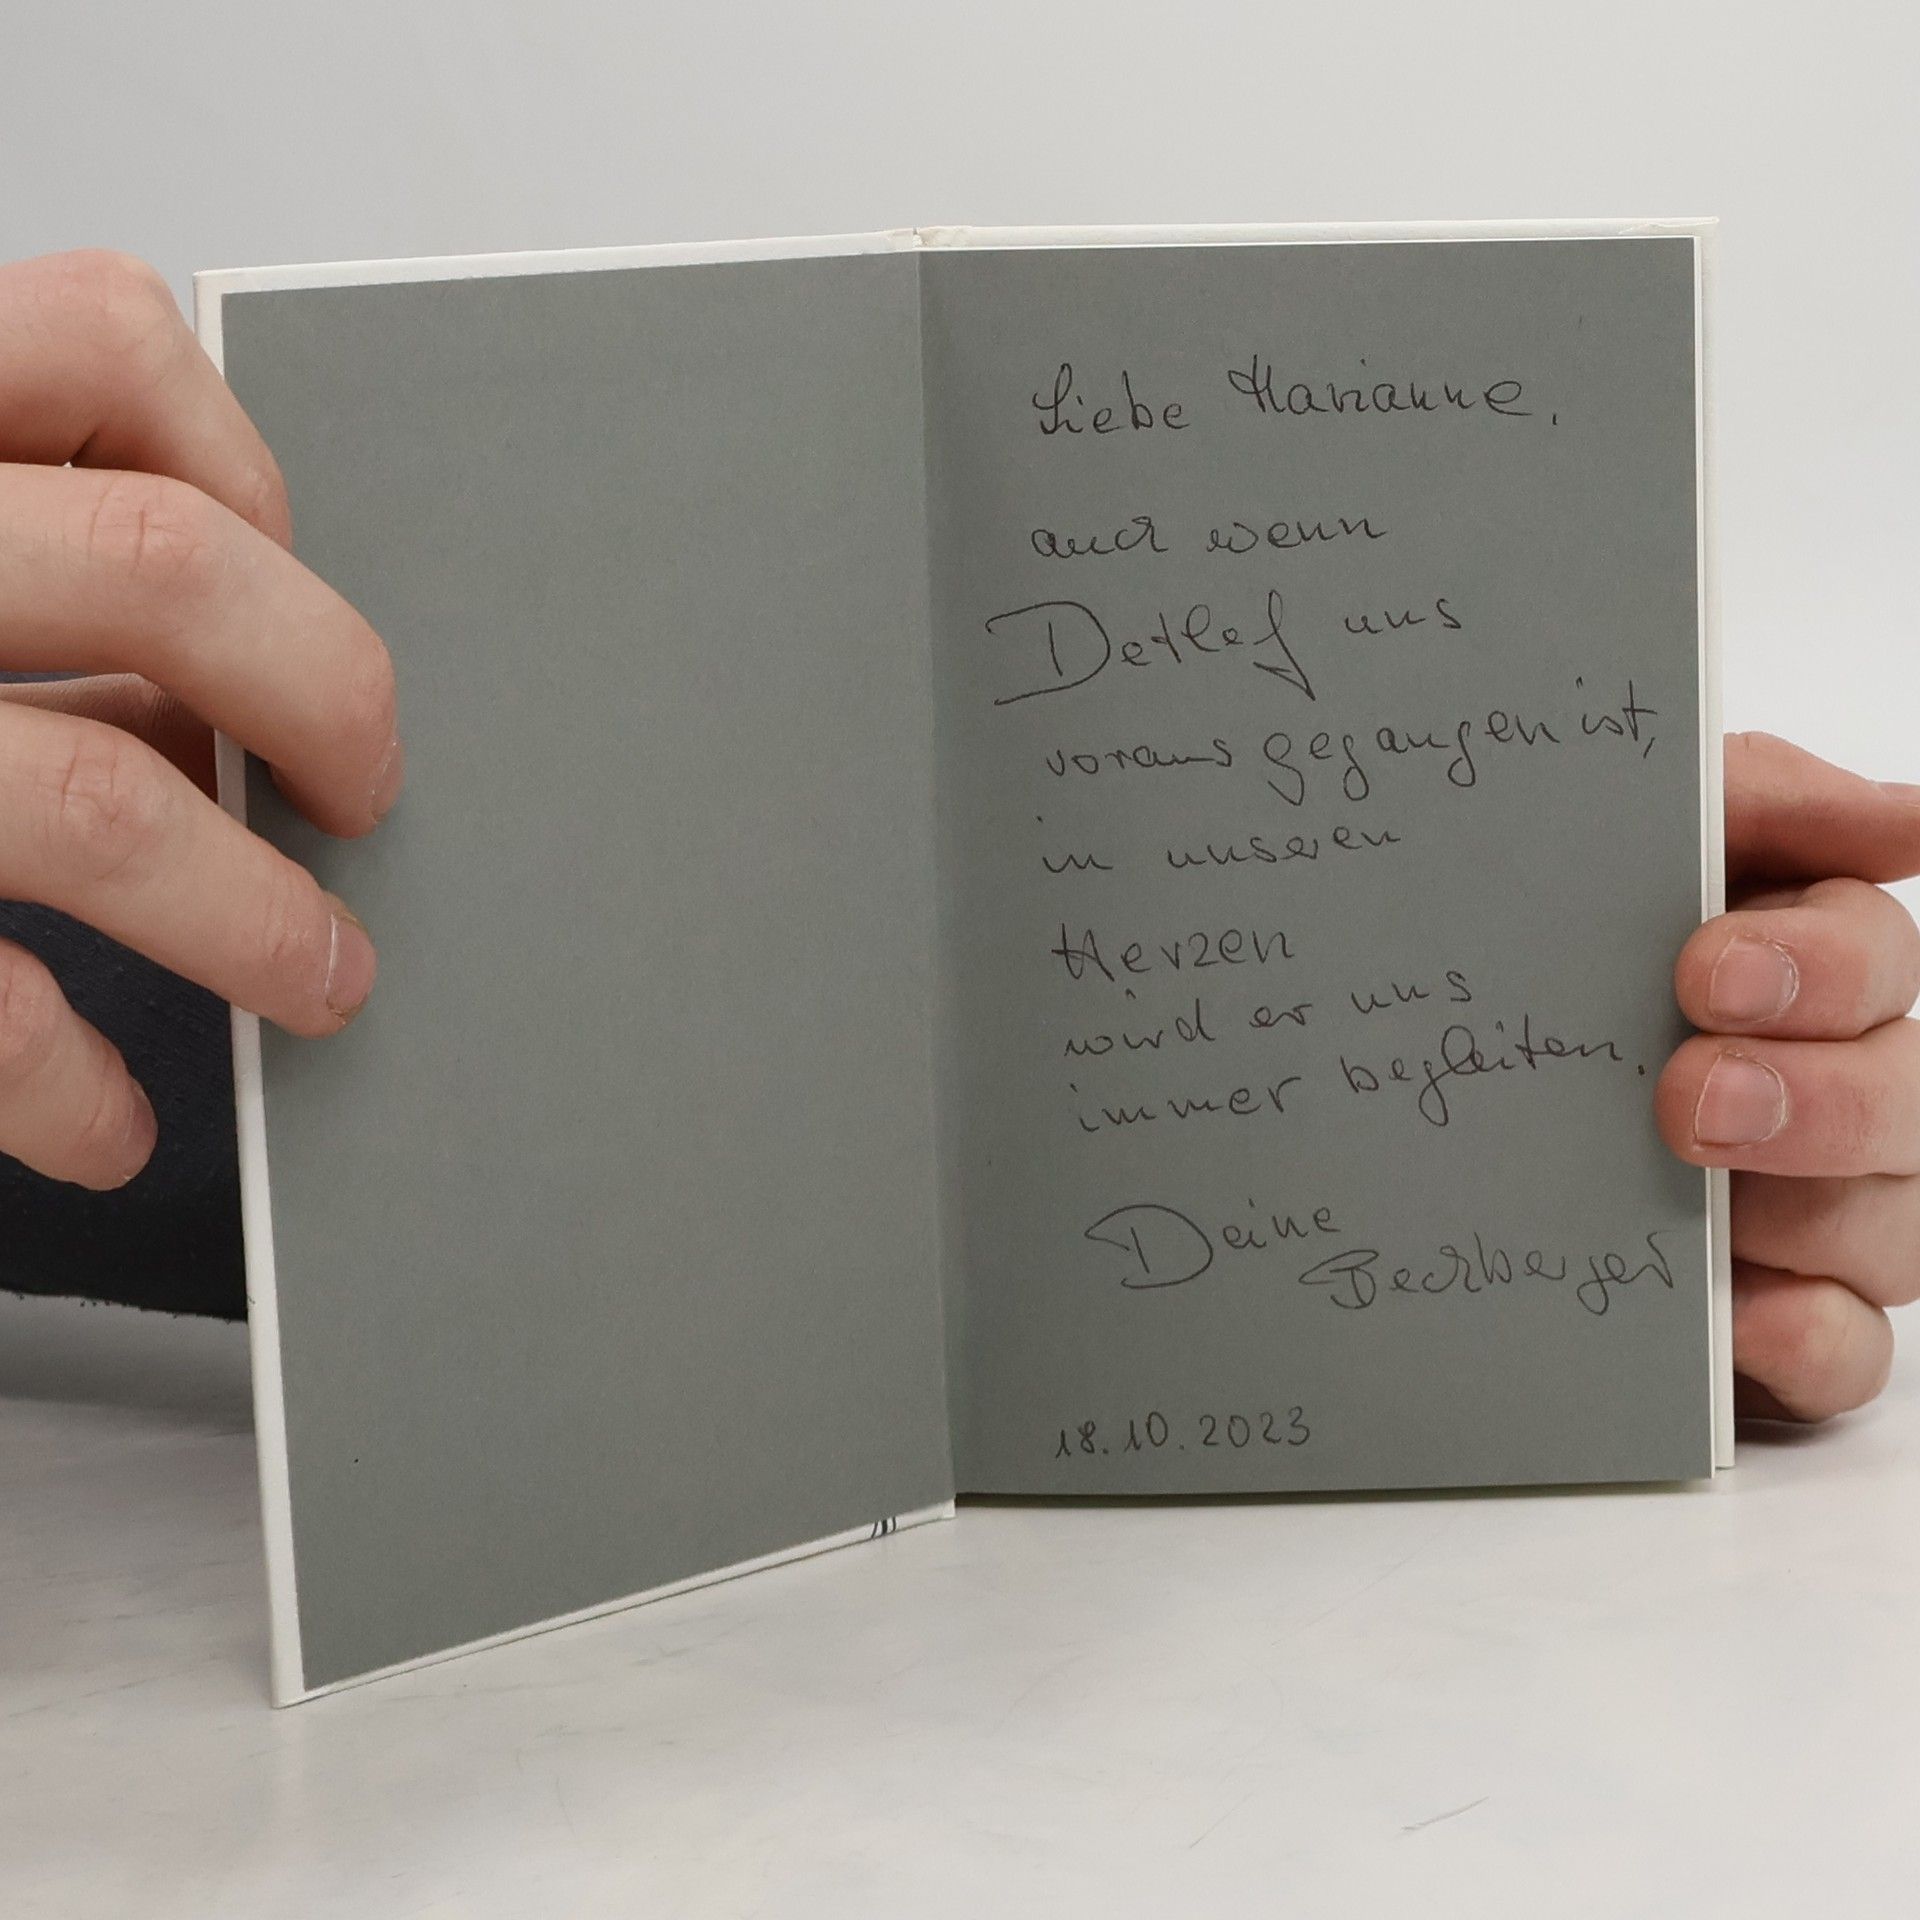 Liebe Marianne,
auch wenn
Detlef uns
voraus gegangen ist,
in unseren
Herzen
wird er uns
immer begleiten.
Deine
Bechberger
18.10.2023